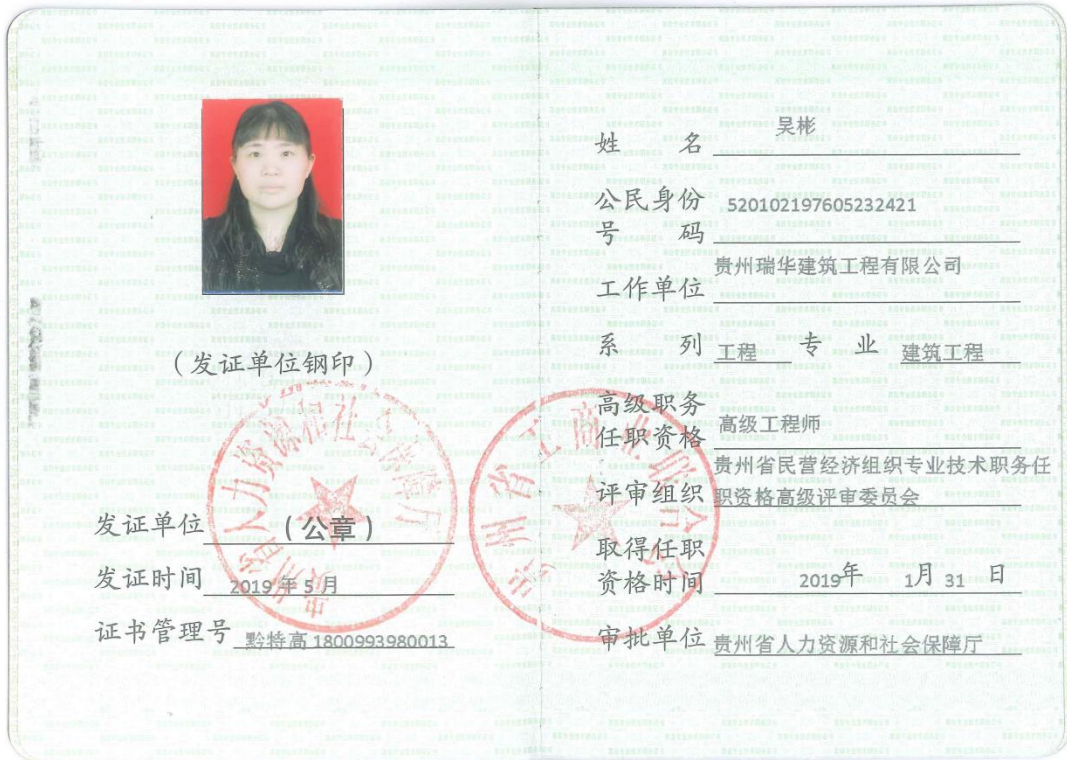 （发证单位钢印）
发证单位 （公章）
发证时间 2019 年 5 月
证书管理号 黔特高 1800993980013
姓 名 吴彬
公民身份
号 码 520102197605232421
工作单位 贵州瑞华建筑工程有限公司
系 列 工程 专 业 建筑工程
高级职务
任职资格 高级工程师
评审组织 贵州省民营经济组织专业技术职务任
职资格高级评审委员会
取得任职
资格时间 2019年 1月 31 日
审批单位 贵州省人力资源和社会保障厅
贵州省人力资源和社会保障厅
贵州省工商业联合会